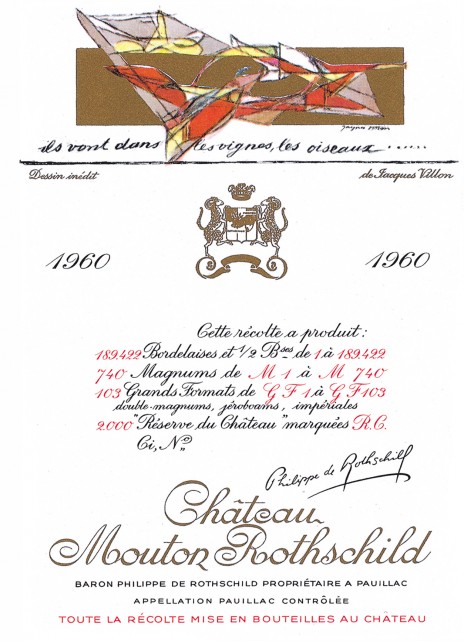 ils vont dans les vignes, les oiseaux......
Dessin inédit de Jacques Villon
1960 1960
Cette récolte a produit:
189.422 Bordelaises et 1/2 Bses de 1 à 189.422
740 Magnums de M 1 à M 740
103 Grands Formats de G F 1 à G F 103
double-magnums, jéroboams, impériales
2.000 "Réserve du Château" marquées R.C.
Ci, No
Philippe de Rothschild
Château
Mouton Rothschild
BARON PHILIPPE DE ROTHSCHILD PROPRIÉTAIRE A PAUILLAC
APPELLATION PAUILLAC CONTRÔLÉE
TOUTE LA RÉCOLTE MISE EN BOUTEILLES AU CHATEAU